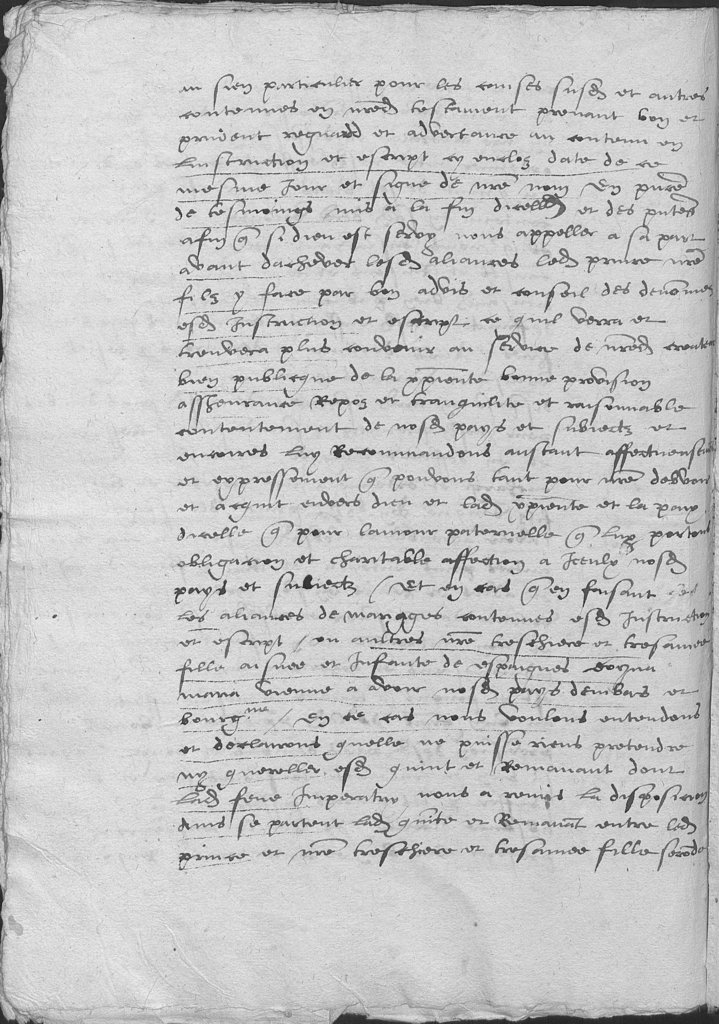 au sien particulier pour les causes susd et autres
contenues en nred testament prenant bon et
prudent reguard et advertance au contenu en
linstruction et escript cy encloz date de ce
mesme jour et signe de nre nom En pnce
de tesmoings mis a la fin dicelluy et des pntes
afin q si dieu est servy nous appeller a sa part
avant dachever lesd aliances led prince nre
filz y face par bon advis et conseil des denommez
esd Instruction et escript ce quil verra et
trouvera plus convenir au service de nred createur
bien publicque de la xpiente bonne provision
assheurance Repoz et tranquilite et raisonnable
contentement de nosd pays et subiectz et
encoires luy Recommandons aultant affectueusemt
et expressement q pouvons tant pour nre debvoir
et acquit envers dieu et lad xpiente et la paix
dicelle q pour lamour paternelle q luy portons
obligacion et charitable affection a Iceulx nosd
pays et subiectz / Et en cas q en faisant
les aliances de mariages contenues esd Instruction
et escript / ou aultres nre treschiere et tresamee
fille aisnee et Infante de espaignes doyna
maria vienne a avoir nosd pays dembas et
bourgne / En ce cas nous voulons entendons
et declairons quelle ne puisse riens pretendre
ny quereller esd quint et Remanant dont
Lad feue Imperatrix nous a remis la disposicion
Ains se partent lad quinte et Remanat entre led
prince et nre treschiere et tresamee fille seconde